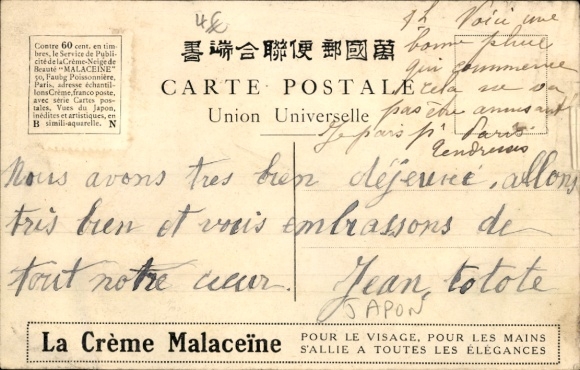 Contre 60 cent. en tim-
bres, le Service de Publi-
cité de la Crème-Neige de
Beauté "MALACEINE"
30, Faubg Poissonnière,
Paris, adresse échantil-
lons Crème, franco poste,
avec série Cartes pos-
tales, Vues du Japon,
inédites et artistiques, en
B simili-aquarelle. N
書端合聯便郵國萬
CARTE POSTALE
Union Universelle
Voici une
bonne pluie
qui commence
cela ne va
pas être amusant
Je pars pr Paris
Nous avons tres bien déjeuné, allons
tris bien et vous embrassons de
tout notre cœur. Jean, totote
JAPON
La Crème Malaceïne POUR LE VISAGE, POUR LES MAINS
S'ALLIE A TOUTES LES ÉLÉGANCES